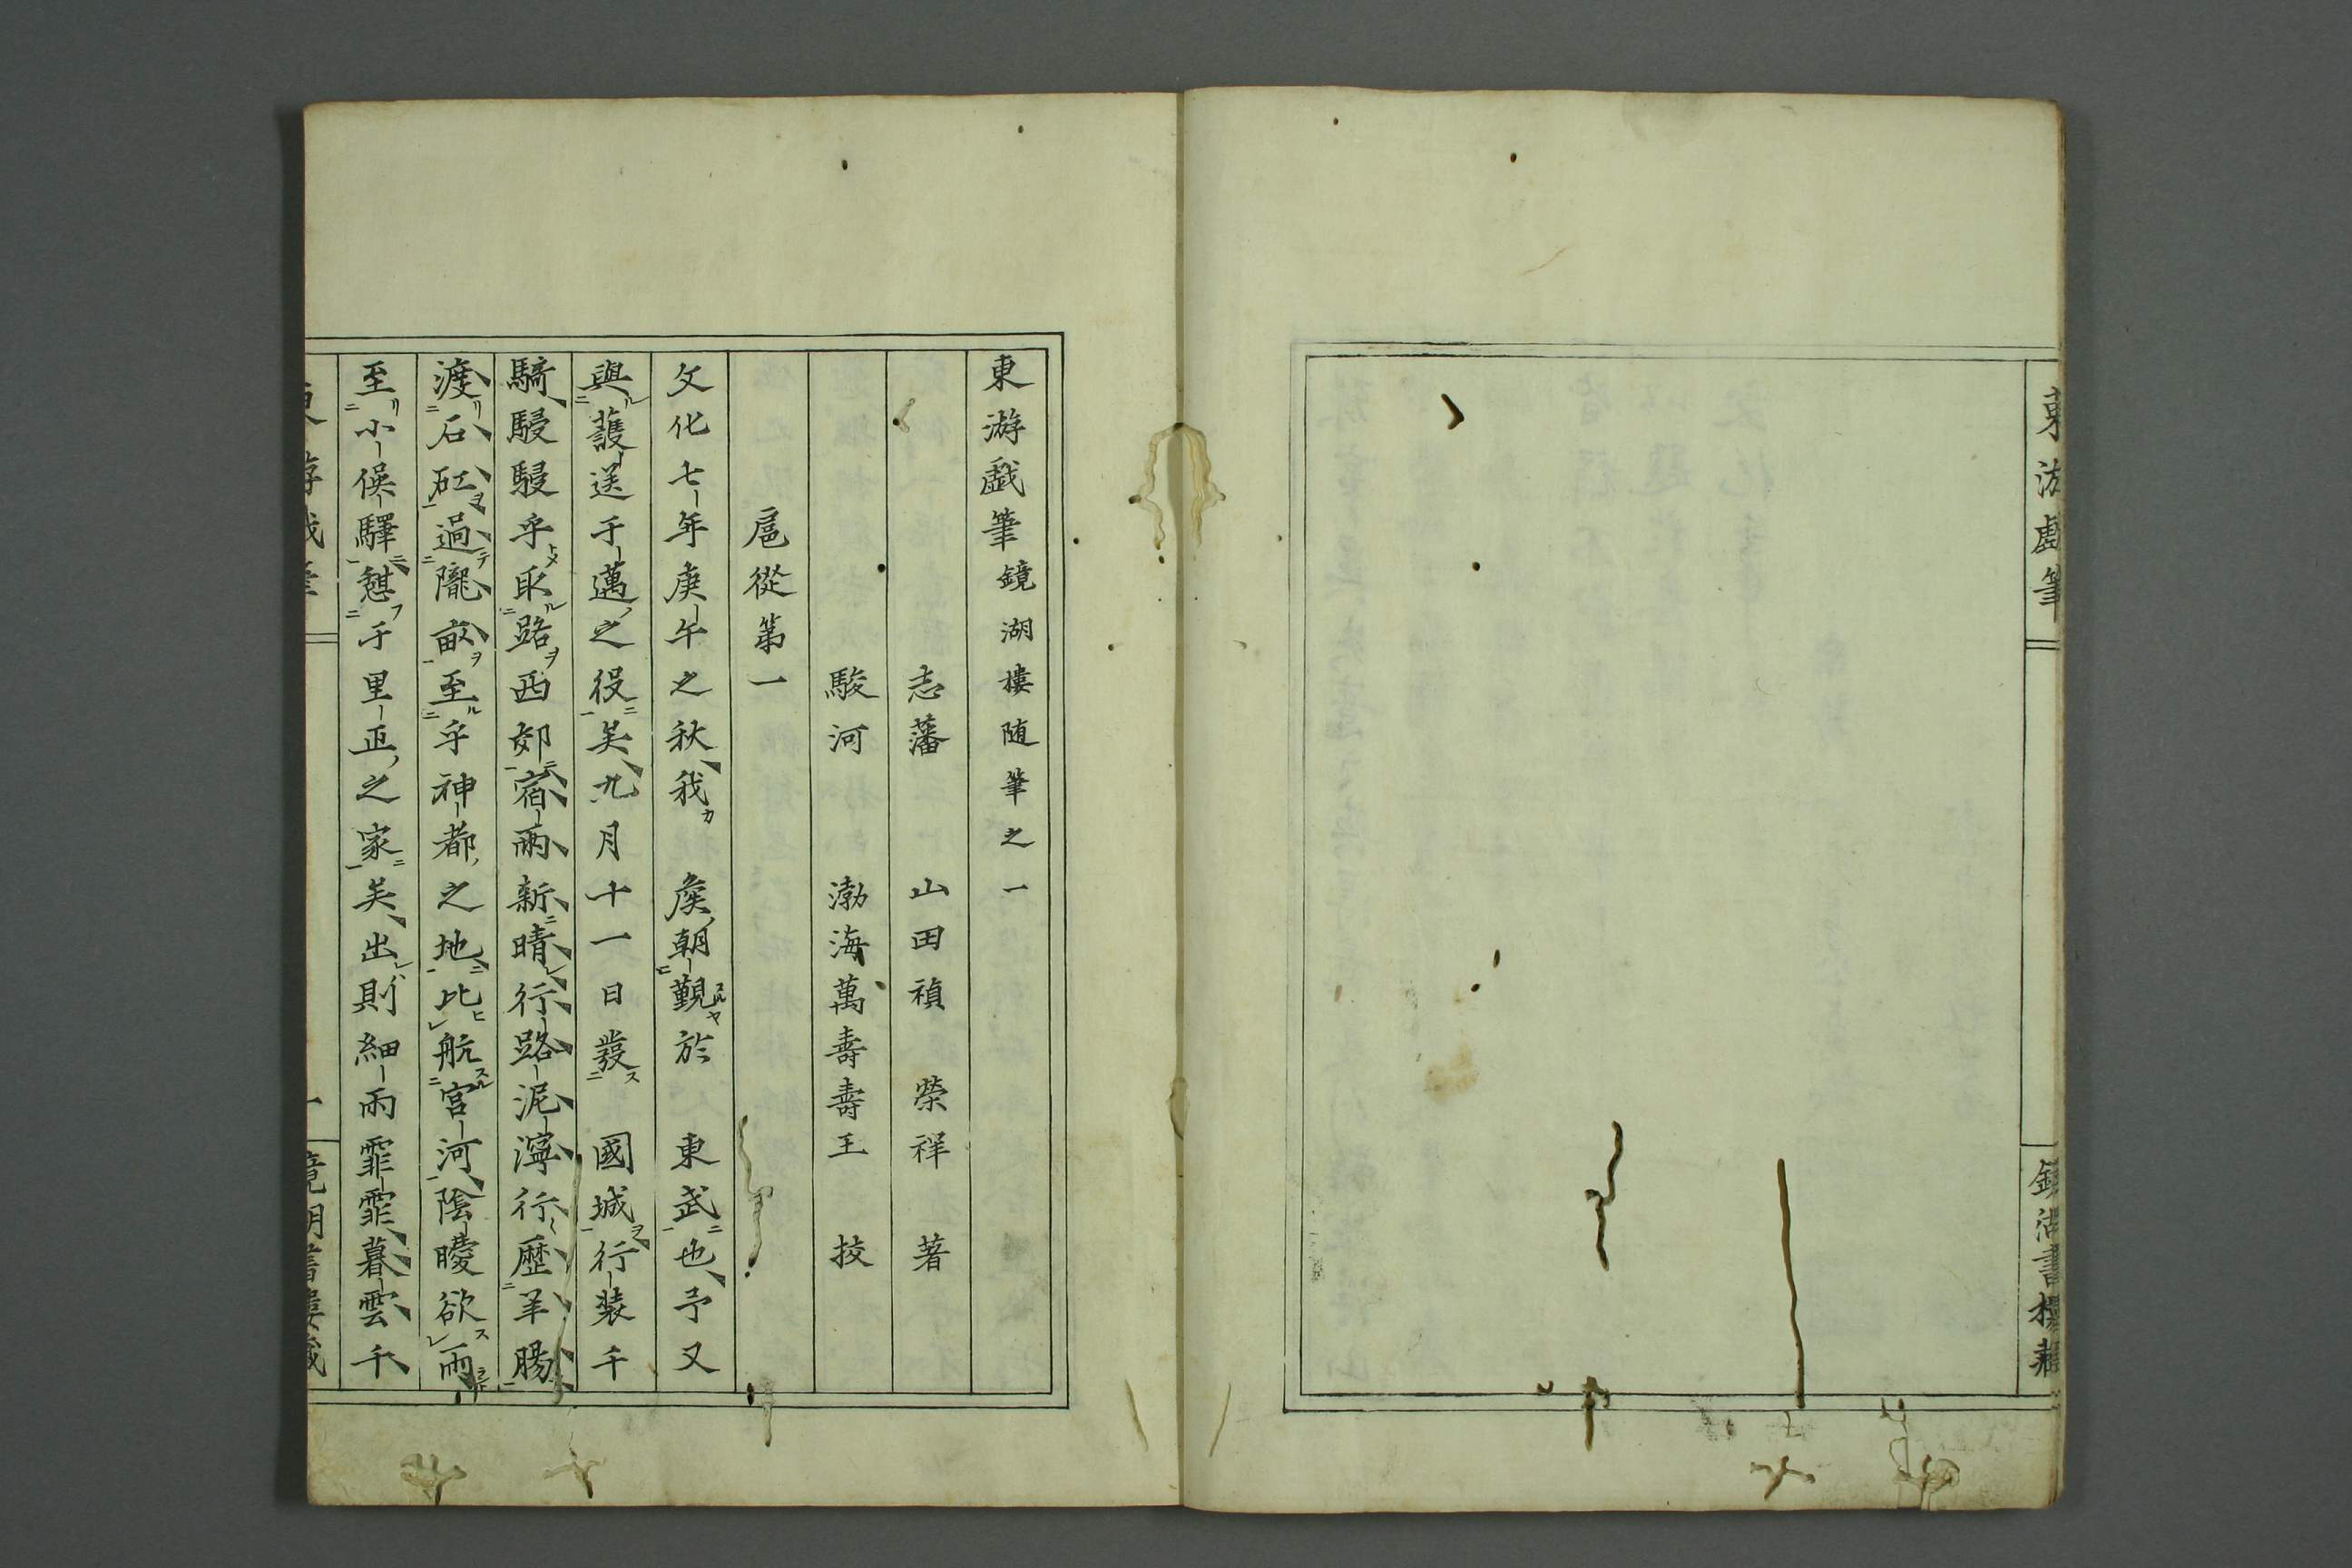 東游戯筆
東游戯筆鏡湖樓随筆之一
志藩 山田禎 榮祥 著
駿河 渤海萬壽壽王 挍
扈從第一
文化七年庚午之秋我 侯朝覲於 東武也予又
與護送于邁之役矣九月十一日發 國城行装千
騎駸駸乎取路西郊宿雨新晴行路泥濘行歴羊腸
渡石矼過隴畝至乎神都之地比航宮河陰曖欲雨
至小俣驛憇于里正之家矣出則細雨霏霏暮雲千